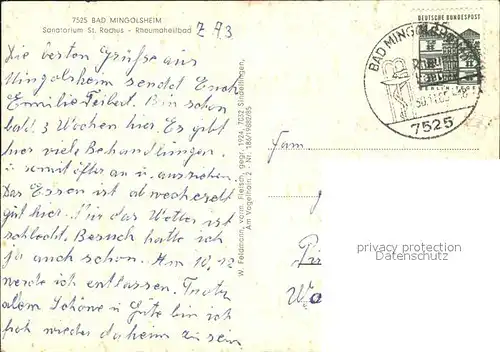 7525 BAD MINGOLSHEIM
Sanatorium St. Rochus - Rheumaheilbad
Z 73
Die besten Grüße aus
Mingolsheim sendet Euch
Emilie Seibert. Bin schon
bald 3 Wochen hier. Es gibt
hier viele Behandlungen
u. somit öfter an u. ausziehen.
Das Essen ist abwechselt
gut hier. Nur das Wetter ist
schlecht. Besuch hatte ich
ja auch schon. Am 10. 12
werde ich entlassen. Trotz
allem Schöne u Gute bin ich
froh wieder daheim zu sein
W. Feldmann, vorm. Fleisch, gegr. 1924, 7032 Sindelfingen,
Am Vogelhain 2 - Nr. 186/19680/85
DEUTSCHE BUNDESPOST
BAD MINGOLSHEIM
7525
Fam.
privacy protection
Datenschutz